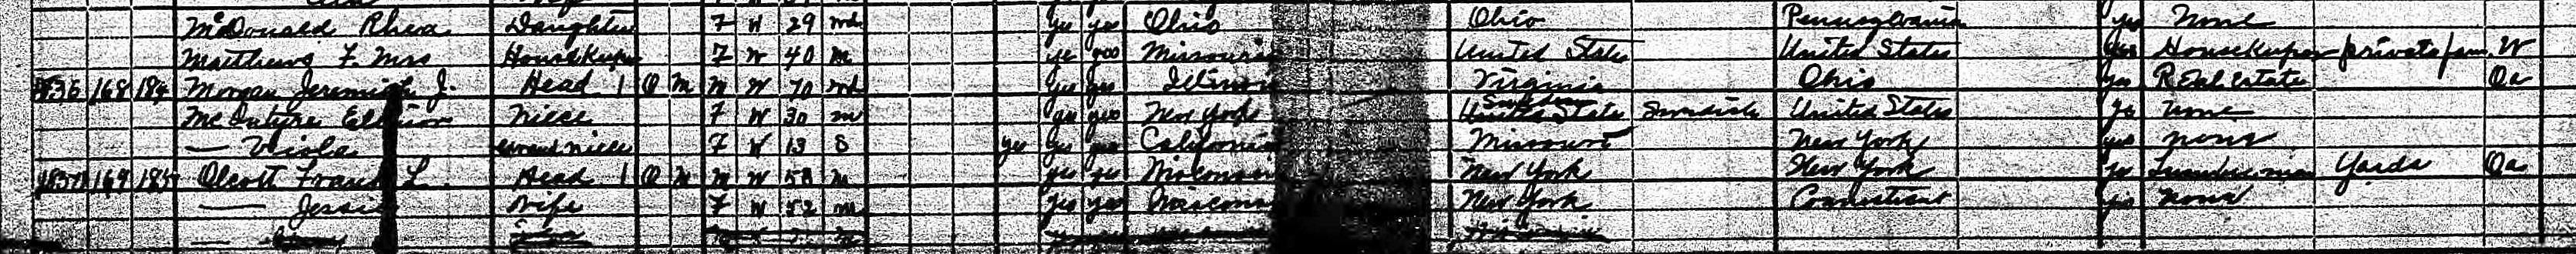 McDonald Rhea Daughter F W 29 wd yes yes Ohio Ohio Pennsylvania yes None
Matthews F. Mrs Housekeeper F W 40 m yes yes Missouri United States United States yes Housekeeper private fam. W
168 184 Morgan Jeremiah J. Head 1 O M M W 70 wd yes yes Illinois Virginia Ohio yes Real Estate Oa
McIntyre Niece F W 30 m yes yes New York Sweden Swedish United States yes none
— Viola Grand niece F W 13 S yes yes yes California Missouri New York yes none
169 185 Olcott Frank L. Head 1 O M M W 58 m yes yes Wisconsin New York New York yes Lumberman Yards Oa
— Jessie Wife F W 52 m yes yes Wisconsin New York Connecticut yes none